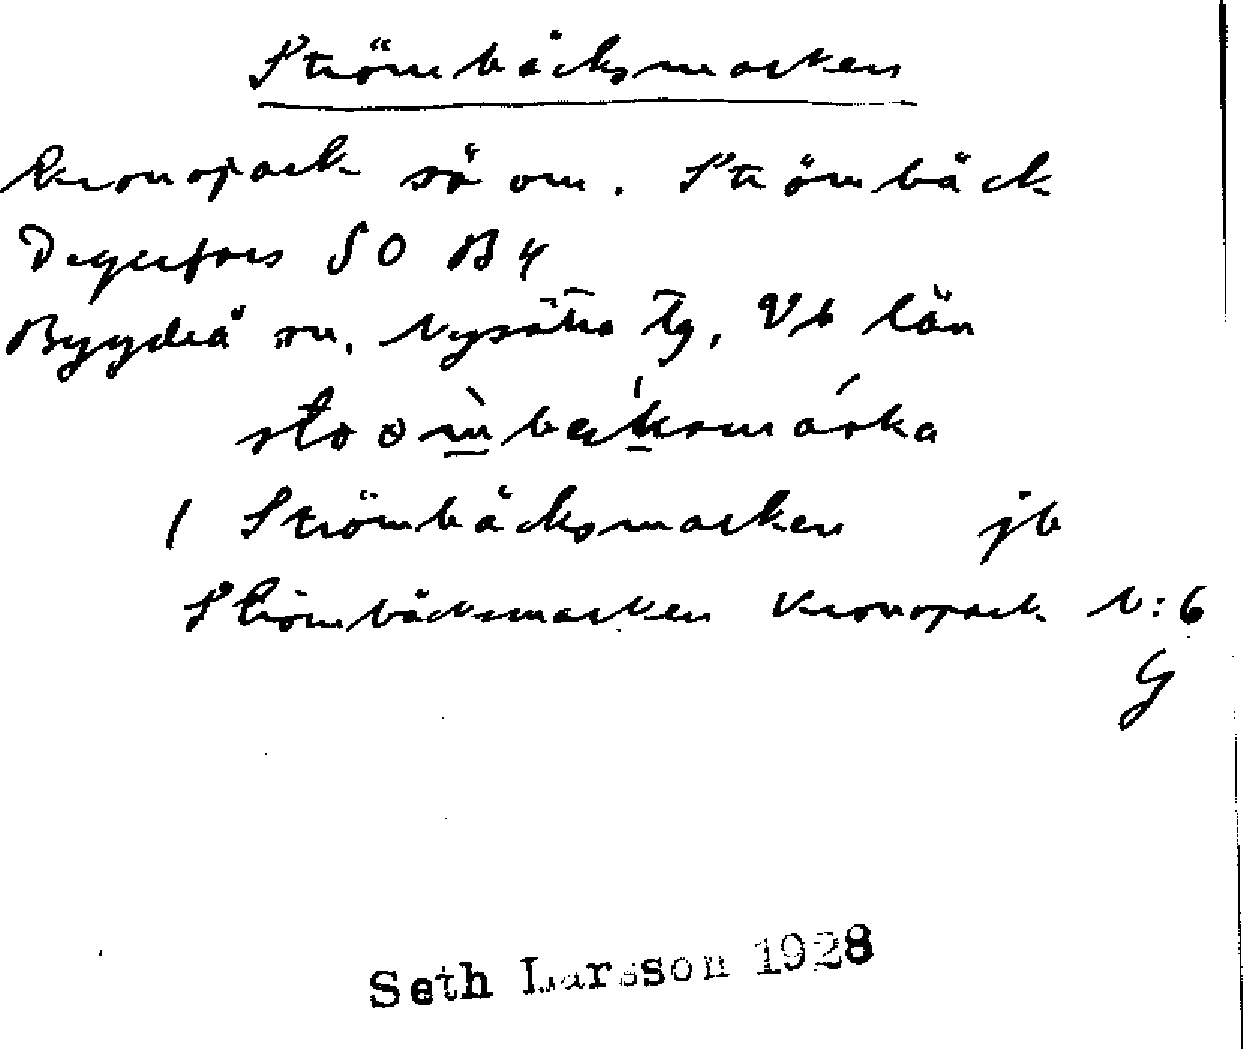 Strömbäcksmarken
kronopark sö om. Strömbäck
Degerfors SO B4
Bygdeå sn. Nysätra tg, Vb län
1 Strömbäcksmarken jb
Strömbäcksmarken kronopark 1:6
G
Seth Larsson 1928